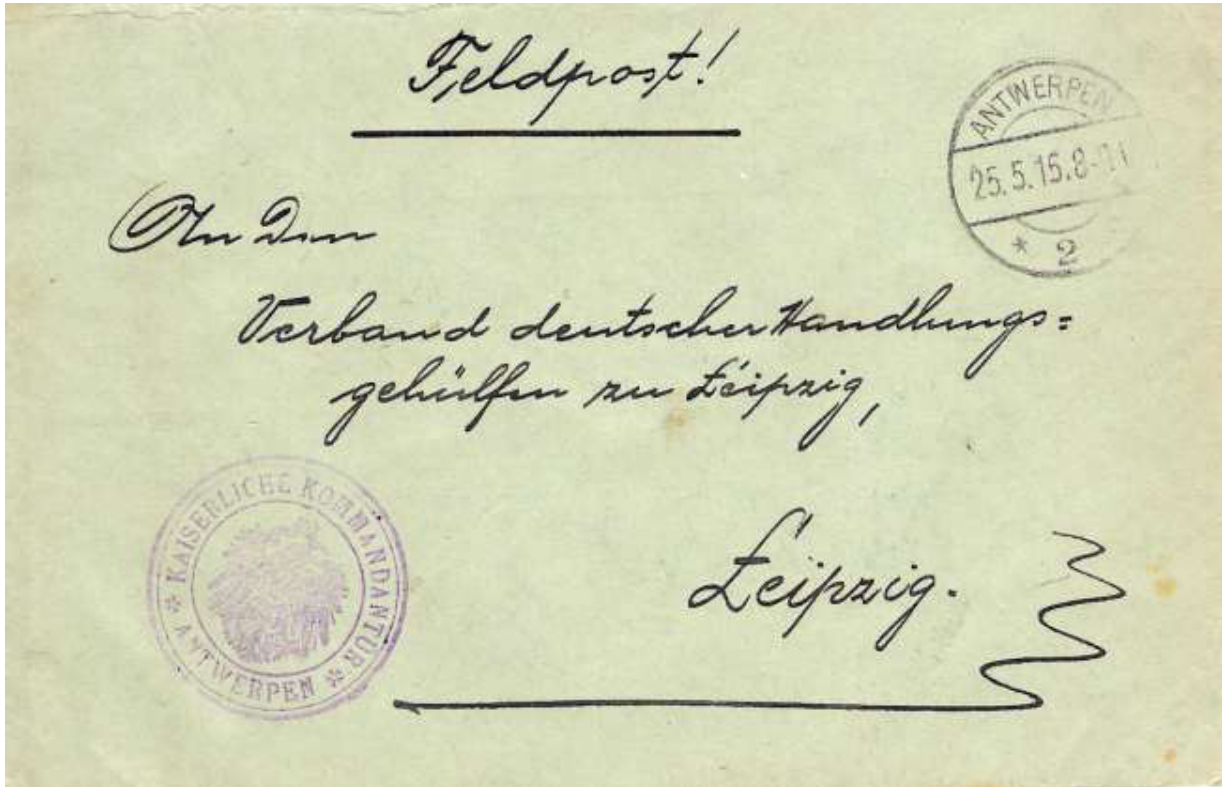 Feldpost!
ANTWERPEN
25.5.15.8-
* 2
An den
Verband deutscher Handlungs=
gehülfen zu Leipzig,
KAISERLICHE KOMMANDANTUR
* ANTWERPEN *
Leipzig.